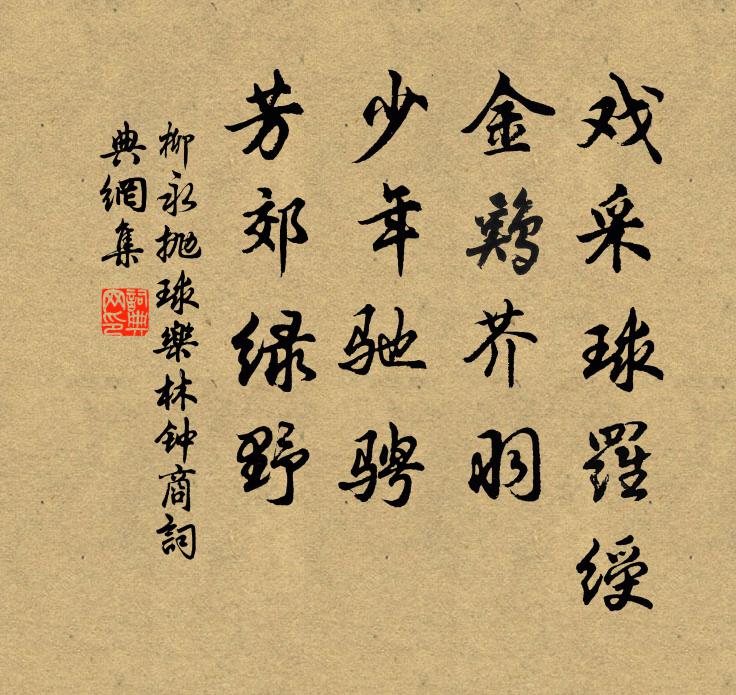 戏采球羅绶
金鷄芥羽
少年驰骋
芳郊绿野
柳永抛球樂林钟商詞
典網集
詞典
网印